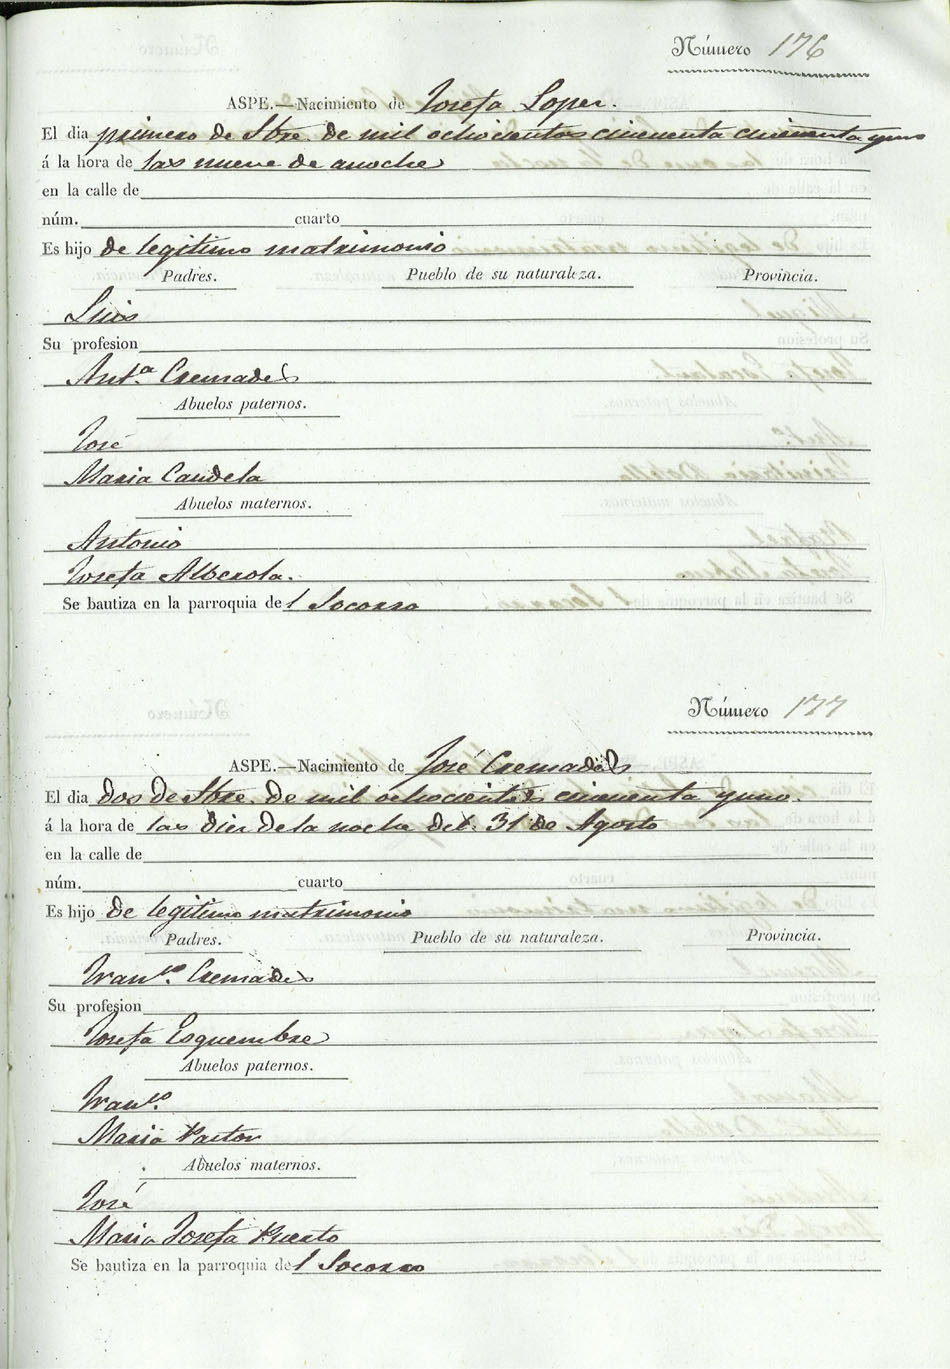 Número 176
ASPE.—Nacimiento de Josefa Lopez.
El dia primero de Sbre. de mil ochocientos cincuenta cincuenta y uno
á la hora de las nueve de anoche
en la calle de
núm. cuarto
Es hijo de legitimo matrimonio
Padres. Pueblo de su naturaleza. Provincia.
Luis
Su profesion
Ant.ª Cremades
Abuelos paternos.
José
Maria Candela
Abuelos maternos.
Antonio
Josefa Alberola.
Se bautiza en la parroquia del Socorro
Número 177
ASPE.—Nacimiento de José Cremades
El dia dos de Sbre. de mil ochocientos cincuenta y uno.
á la hora de las diez de la noche del 31 de Agosto
en la calle de
núm. cuarto
Es hijo de legitimo matrimonio
Padres. Pueblo de su naturaleza. Provincia.
Fran.co Cremades
Su profesion
Josefa Esquembre
Abuelos paternos.
Fran.co
Maria Pastor
Abuelos maternos.
José
Maria Josefa Puerto
Se bautiza en la parroquia del Socorro